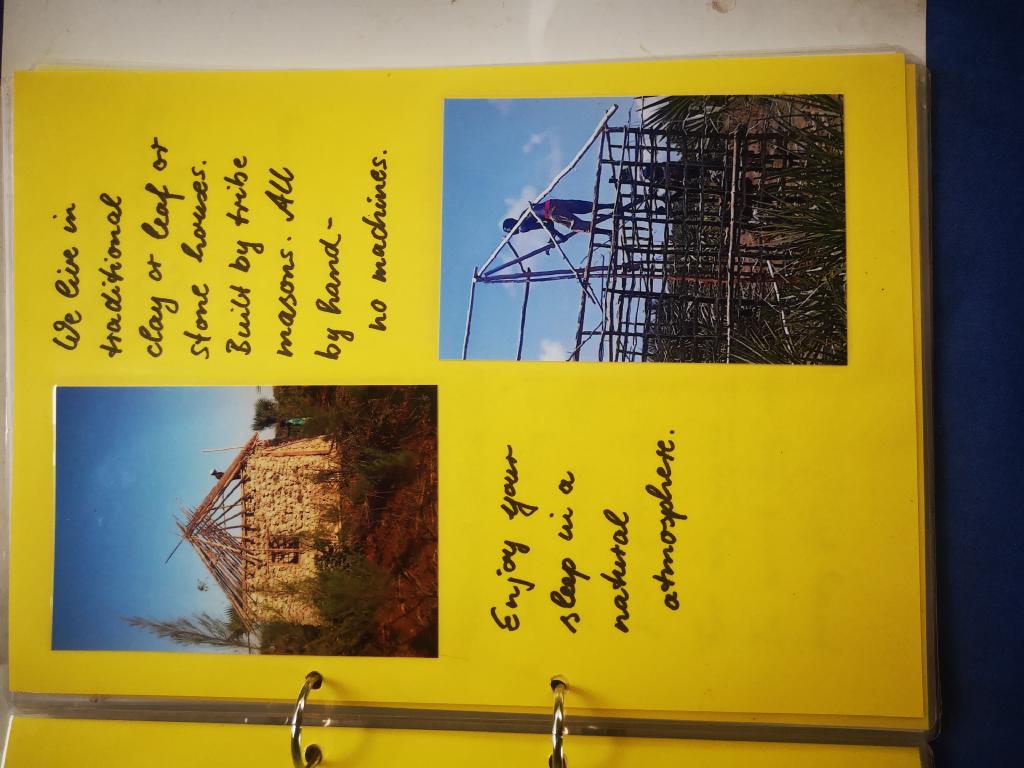 We live in
traditional
clay or leaf or
stone houses.
Built by tribe
masons. All
by hand-
no machines.
Enjoy your
sleep in a
natural
atmosphere.